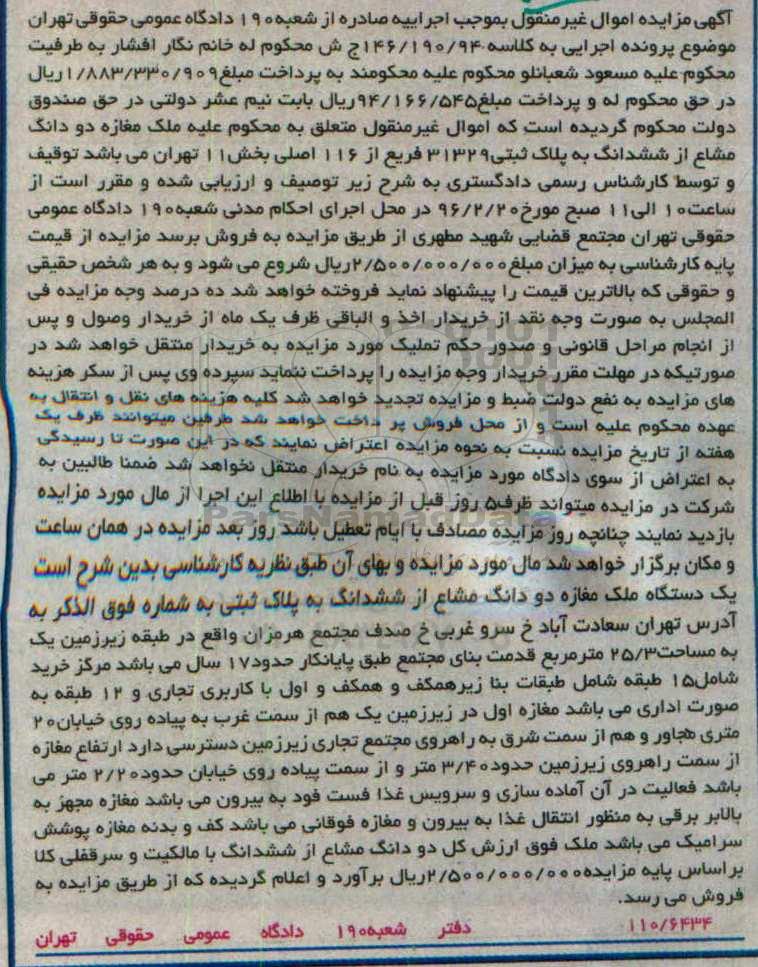 آگهی مزایده اموال غیرمنقول بموجب اجراییه صادره از شعبه۱۹۰ دادگاه عمومی حقوقی تهران
موضوع پرونده اجرایی به کلاسه ۱۴۶/۱۹۰/۹۴ج ش محکوم له خانم نگار افشار به طرفیت
محکوم علیه مسعود شعبانلو محکوم علیه محکومند به پرداخت مبلغ۱/۸۸۳/۳۳۰/۹۰۹ریال
در حق محکوم له و پرداخت مبلغ۹۴/۱۶۶/۵۴۵ریال بابت نیم عشر دولتی در حق صندوق
دولت محکوم گردیده است که اموال غیرمنقول متعلق به محکوم علیه ملک مغازه دو دانگ
مشاع از ششدانگ به پلاک ثبتی۳۱۳۲۹ فریع از ۱۱۶ اصلی بخش۱۱ تهران می باشد توقیف
و توسط کارشناس رسمی دادگستری به شرح زیر توصیف و ارزیابی شده و مقرر است از
ساعت۱۰ الی۱۱ صبح مورخ۹۶/۲/۲۰ در محل اجرای احکام مدنی شعبه۱۹۰ دادگاه عمومی
حقوقی تهران مجتمع قضایی شهید مطهری از طریق مزایده به فروش برسد مزایده از قیمت
پایه کارشناسی به میزان مبلغ۲/۵۰۰/۰۰۰/۰۰۰ریال شروع می شود و به هر شخص حقیقی
و حقوقی که بالاترین قیمت را پیشنهاد نماید فروخته خواهد شد ده درصد وجه مزایده فی
المجلس به صورت وجه نقد از خریدار اخذ و الباقی ظرف یک ماه از خریدار وصول و پس
از انجام مراحل قانونی و صدور حکم تملیک مورد مزایده به خریدار منتقل خواهد شد در
صورتیکه در مهلت مقرر خریدار وجه مزایده را پرداخت ننماید سپرده وی پس از سکر هزینه
های مزایده به نفع دولت ضبط و مزایده تجدید خواهد شد کلیه هزینه های نقل و انتقال به
عهده محکوم علیه است و از محل فروش پر داخت خواهد شد طرفین میتوانند ظرف یک
هفته از تاریخ مزایده نسبت به نحوه مزایده اعتراض نمایند که در این صورت تا رسیدگی
به اعتراض از سوی دادگاه مورد مزایده به نام خریدار منتقل نخواهد شد ضمنا طالبین به
شرکت در مزایده میتواند ظرف۵ روز قبل از مزایده با اطلاع این اجرا از مال مورد مزایده
بازدید نمایند چنانچه روز مزایده مصادف با ایام تعطیل باشد روز بعد مزایده در همان ساعت
و مکان برگزار خواهد شد مال مورد مزایده و بهای آن طبق نظریه کارشناسی بدین شرح است
یک دستگاه ملک مغازه دو دانگ مشاع از ششدانگ به پلاک ثبتی به شماره فوق الذکر به
آدرس تهران سعادت آباد خ سرو غربی خ صدف مجتمع هرمزان واقع در طبقه زیرزمین یک
به مساحت۲۵/۳ مترمربع قدمت بنای مجتمع طبق پایانکار حدود۱۷ سال می باشد مرکز خرید
شامل۱۵ طبقه شامل طبقات بنا زیرهمکف و همکف و اول با کاربری تجاری و ۱۲ طبقه به
صورت اداری می باشد مغازه اول در زیرزمین یک هم از سمت غرب به پیاده روی خیابان۲۰
متری مجاور و هم از سمت شرق به راهروی مجتمع تجاری زیرزمین دسترسی دارد ارتفاع مغازه
از سمت راهروی زیرزمین حدود۳/۴۰ متر و از سمت پیاده روی خیابان حدود۲/۲۰ متر می
باشد فعالیت در آن آماده سازی و سرویس غذا فست فود به بیرون می باشد مغازه مجهز به
بالابر برقی به منظور انتقال غذا به بیرون و مغازه فوقانی می باشد کف و بدنه مغازه پوشش
سرامیک می باشد ملک فوق ارزش کل دو دانگ مشاع از ششدانگ با مالکیت و سرقفلی کلا
براساس پایه مزایده۲/۵۰۰/۰۰۰/۰۰۰ریال برآورد و اعلام گردیده که از طریق مزایده به
فروش می رسد.
۱۱۰/۶۴۳۴ دفتر شعبه۱۹۰ دادگاه عمومی حقوقی تهران